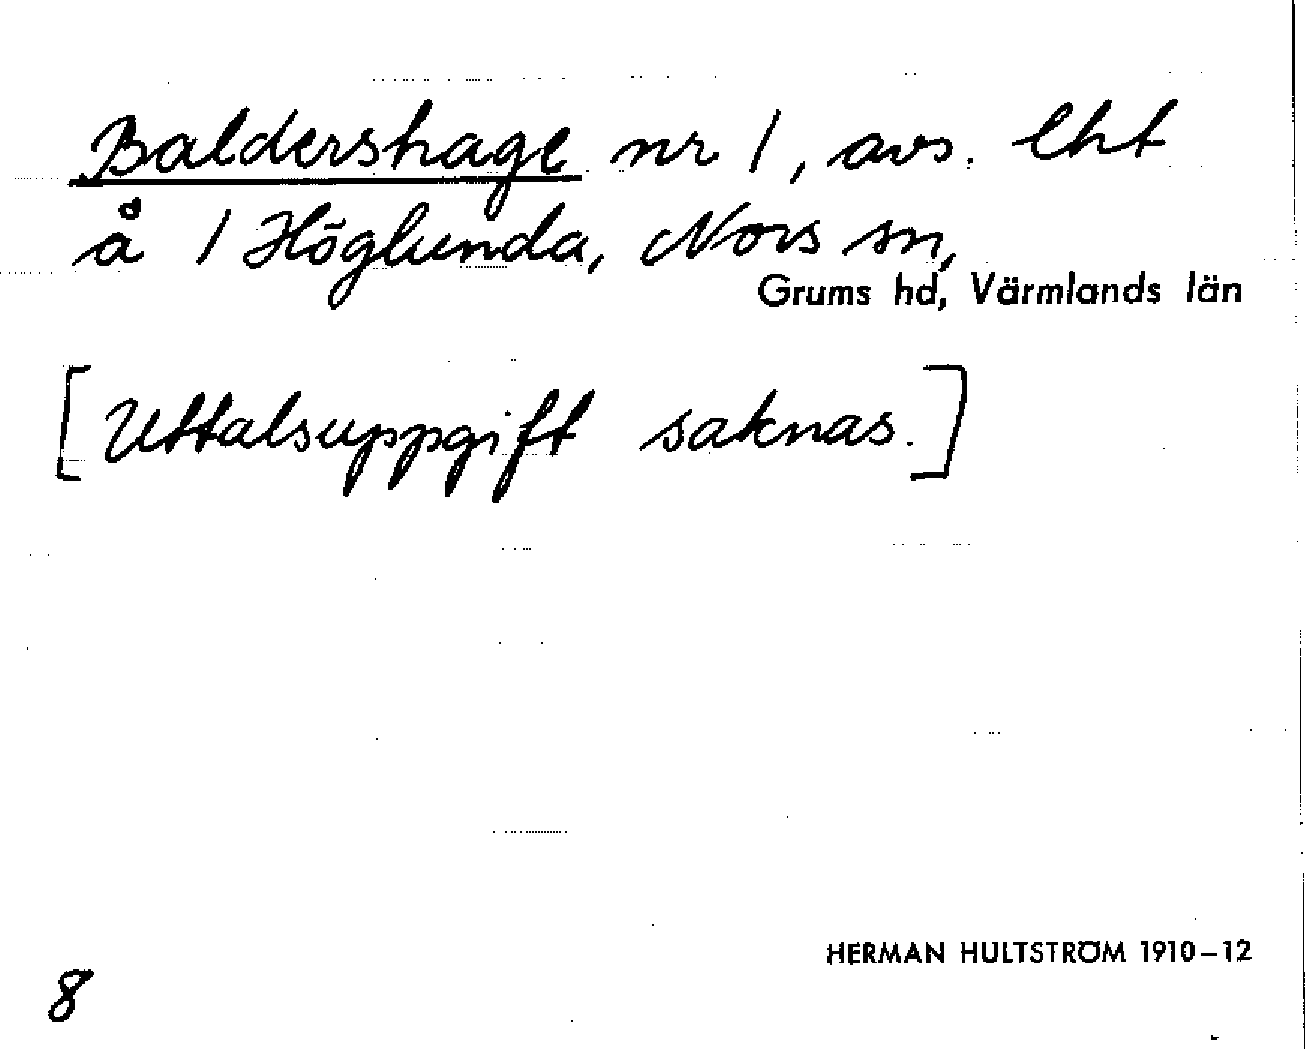 Baldershage nr 1, avs. lht
å 1 Höglunda, Nors sn,
Grums hd, Värmlands län
[Uttalsuppgift saknas.]
HERMAN HULTSTRÖM 1910–12
8